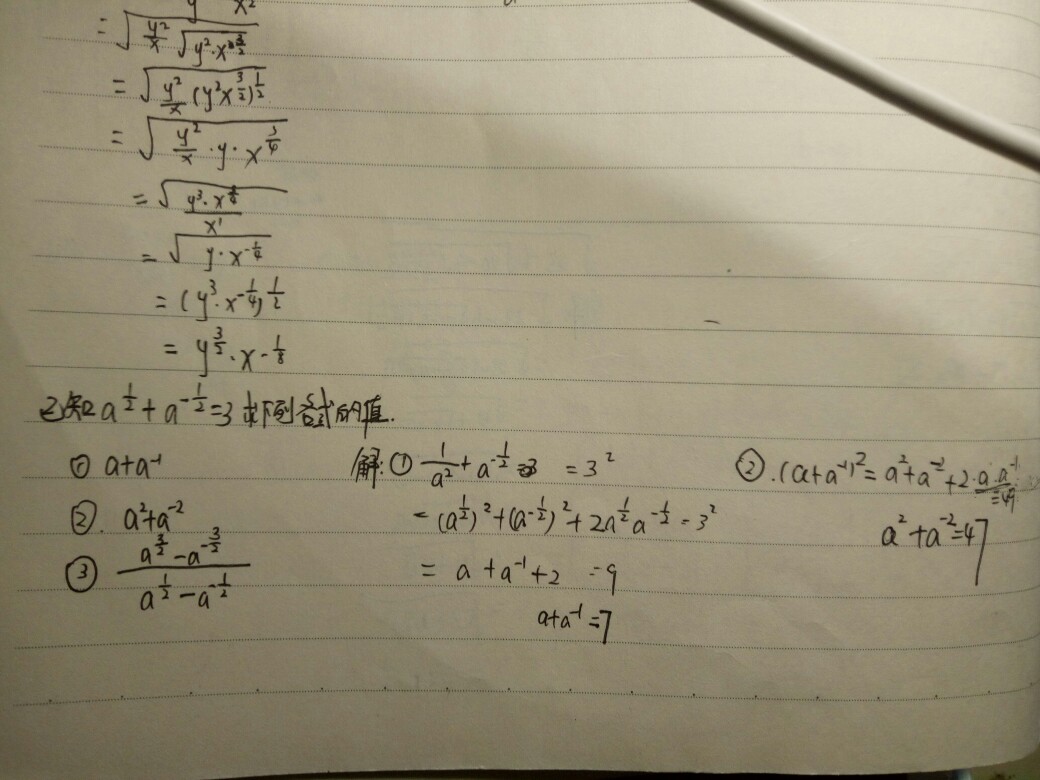 = √(y²/x √(y²·x^(3/2)))
= √(y²/x (y²x^(3/2))^(1/2))
= √(y²/x ·y· x^(3/4))
= √(y³·x^(3/4)/x¹)
= √(y·x^(-1/4))
= (y³·x^(-1/4))^(1/2)
= y^(3/2)·x-1/8
已知a^(1/2)+a^(-1/2)=3求下列各式的值.
① a+a⁻¹
②. a²+a⁻²
③ (a^(3/2)-a^(-3/2))/(a^(1/2)-a^(-1/2))
解:① 1/a²+a^(-1/2) =3²
=(a^(1/2))²+(a^(-1/2))²+2a^(1/2)a^(-1/2)=3²
= a+a⁻¹+2 =9
a+a⁻¹=7
②.(a+a⁻¹)²=a²+a⁻²+2·a·a⁻¹
=49
a²+a⁻²=47